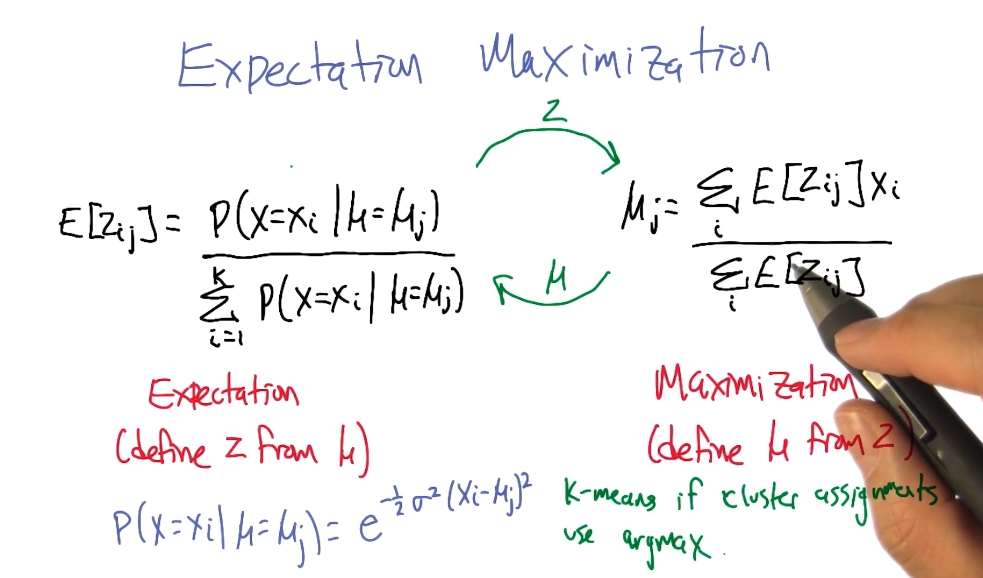 Expectation Maximization
z
E[zij] = P(x=xi | μ=μj) / ∑_{i=1}^{k} P(x=xi | μ=μj)
μj = ∑_i E[zij] xi / ∑_i E[zij]
μ
Expectation
(define z from μ)
Maximization
(define μ from z)
P(x=xi | μ=μj) = e^{-1/2 σ² (xi-μj)²}
k-means if cluster assignments
use argmax.